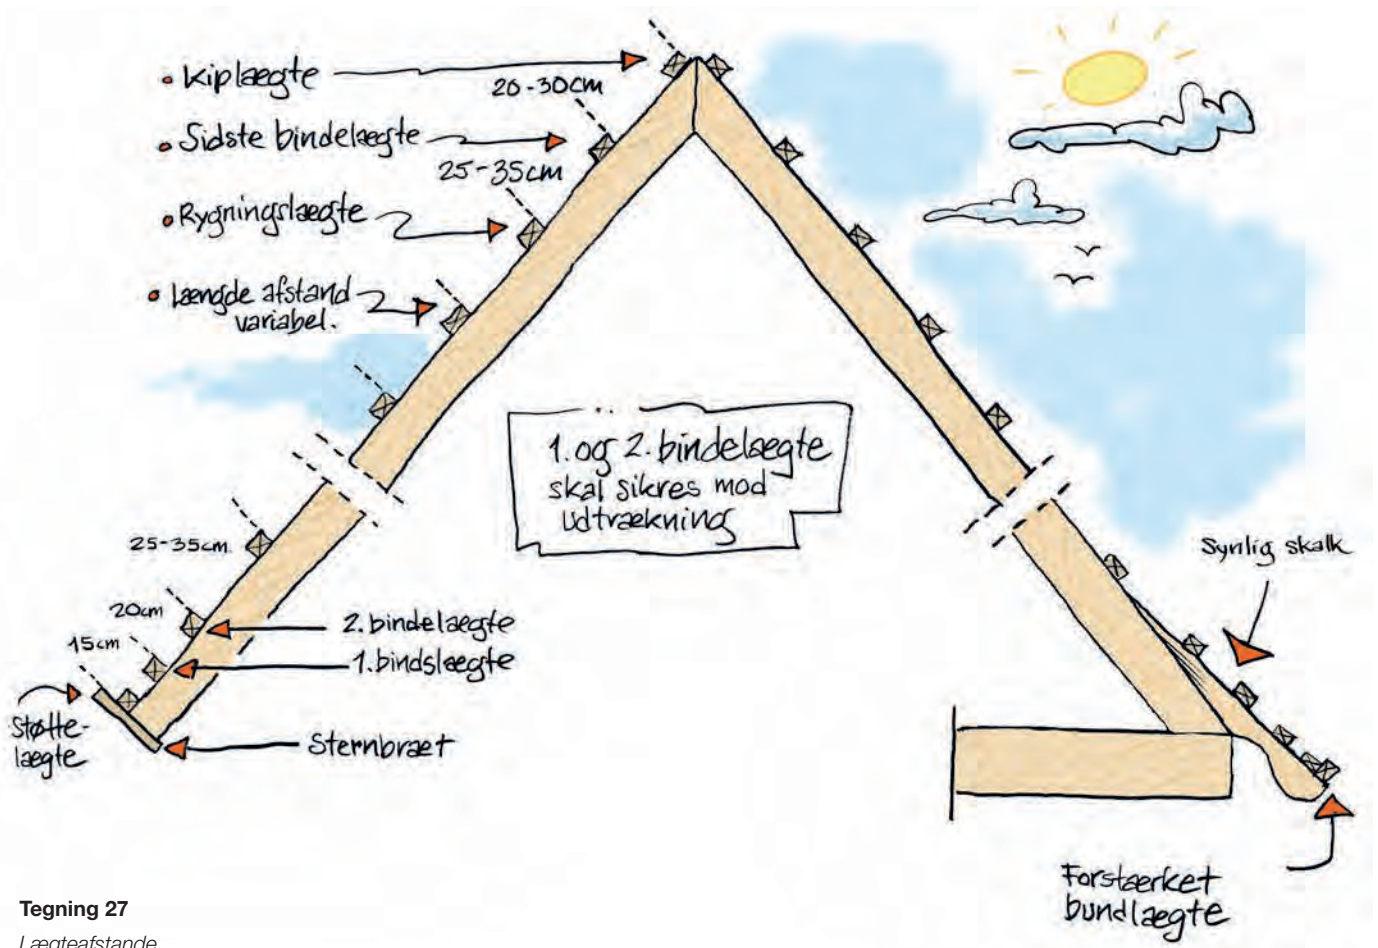 • Kiplægte
20-30cm
• Sidste bindelægte
25-35cm
• Rygningslægte
• Længde afstand
variabel.
1. og 2. bindelægte
skal sikres mod
udtrækning
25-35cm.
20cm
15cm
2. bindelægte
1. bindslægte
Støtte-
lægte
Sternbræt
Synlig skalk
Forstærket
bundlægte
Tegning 27
Lægteafstande